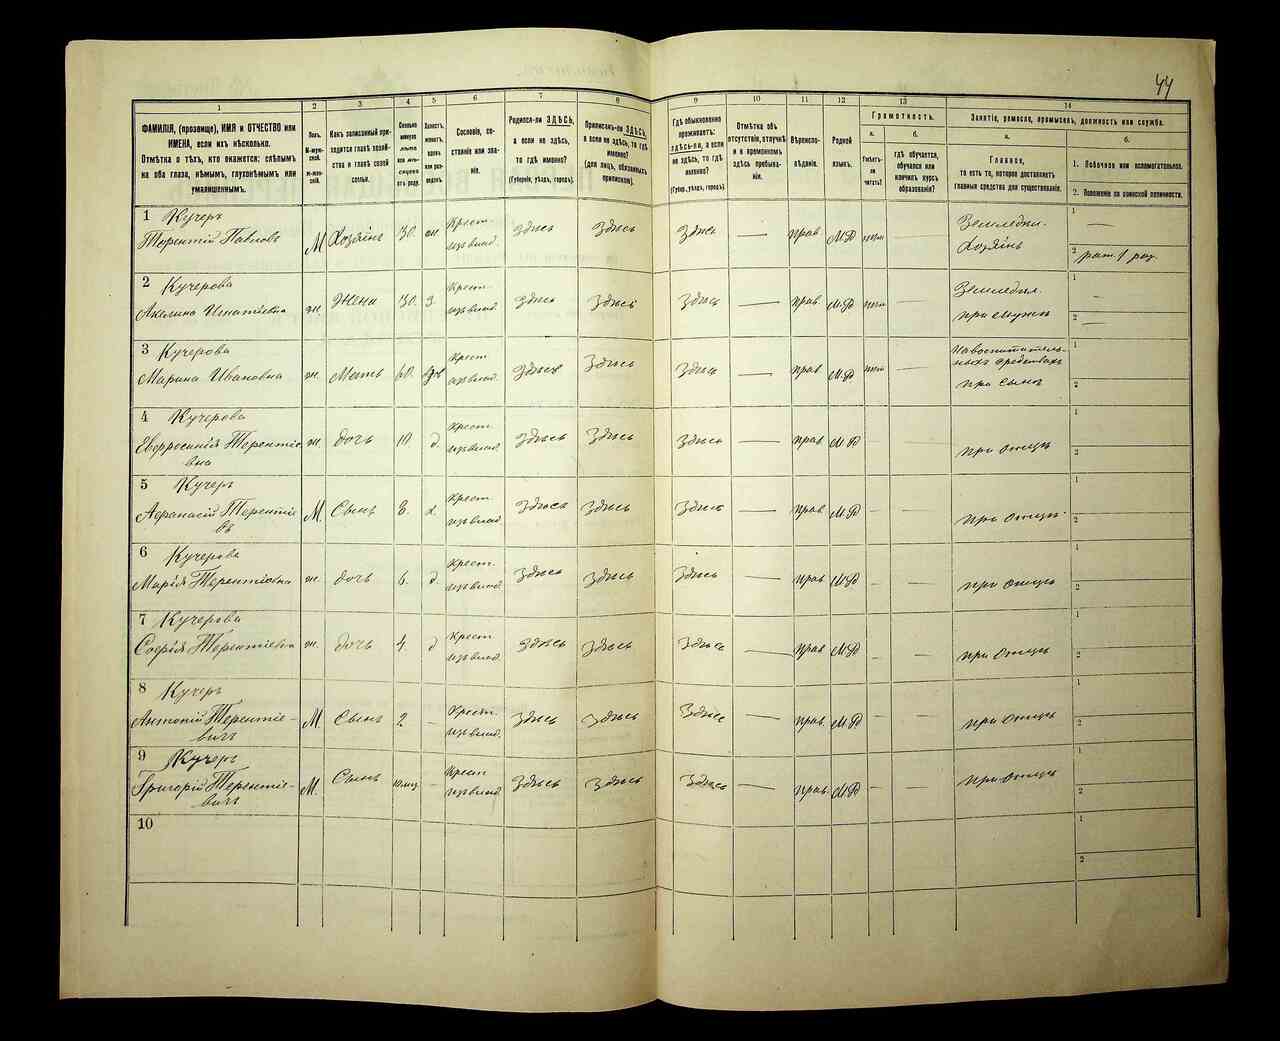 44
1
2
3
4
5
6
7
8
9
10
11
12
13
14
ФАМИЛІЯ, (прозвище), ИМЯ и ОТЧЕСТВО или
ИМЕНА, если ихъ нѣсколько.
Отмѣтка о тѣхъ, кто окажется: слѣпымъ
на оба глаза, нѣмымъ, глухонѣмымъ или
умалишеннымъ.
Полъ.
М-муж-
ской.
Ж-жен-
скій.
Какъ записанный при-
ходится главѣ хозяй-
ства и главѣ своей
семьи.
Сколько
минуло
лѣтъ
или мѣ-
сяцевъ
отъ роду.
Холостъ,
женатъ,
вдовъ
или раз-
веденъ.
Сословіе, со-
стояніе или зва-
ніе.
Родился-ли ЗДѢСЬ,
а если не здѣсь,
то гдѣ именно?
(Губернія, уѣздъ, городъ).
Приписанъ-ли ЗДѢСЬ,
а если не здѣсь, то гдѣ
именно?
(для лицъ, обязанныхъ
припискою).
Гдѣ обыкновенно
проживаетъ:
здѣсь-ли, а если
не здѣсь, то гдѣ
именно?
(Губер., уѣздъ, городъ).
Отмѣтка объ
отсутствіи, отлучкѣ
и о временномъ
здѣсь пребыва-
ніи.
Вѣроиспо-
вѣданіе.
Родной
языкъ.
Грамотность.
а.
Умѣетъ-
ли
читать?
б.
гдѣ обучается,
обучался или
кончилъ курсъ
образованія?
Занятіе, ремесло, промыселъ, должность или служба.
а.
Главное,
то есть то, которое доставляетъ
главныя средства для существованія.
б.
1. Побочное или вспомогательное.
2. Положеніе по воинской повинности.
1 Кучеръ
Терентій Павловъ М Хозяинъ 30. ж Крест. изъ влад. Здѣсь Здѣсь Здѣсь — прав. М.Р нѣт — Земледѣл. Хозяинъ
1 —
2 рат. 1 раз.
2 Кучерова
Акелина Игнатіевна ж. Жена 30. З. Крест. изъ влад. Здѣсь Здѣсь Здѣсь — прав М.Р нѣт — Земледѣл. при мужѣ
1 —
2 —
3 Кучерова
Марина Ивановна ж. Мать 60. вдов Крест изъ влад. Здѣсь Здѣсь Здѣсь — прав М.Р нѣт — при сынѣ
1
2
4 Кучерова
Евфросинія Терентіе
вна ж. дочь 10 д. Крест. изъ влад. Здѣсь Здѣсь Здѣсь — прав М Р при отцѣ
1
2
5 Кучеръ
Афанасій Терентіе
въ М. Сынъ 8. х. Крест. изъ влад. Здѣсь Здѣсь Здѣсь — прав. М.Р — — при отцѣ
1
2
6 Кучерова
Марія Терентіевна ж. дочь 6. д Крест. изъ влад. Здѣсь Здѣсь Здѣсь — прав М.Р — — при отцѣ
1
2
7 Кучерова
Софія Терентіевна ж. дочь 4. д Крест изъ влад. Здѣсь Здѣсь Здѣсь — прав М.Р — — при отцѣ
1
2
8 Кучеръ
Антоній Терентіе-
вичъ М. Сынъ 2 — Крест. изъ влад. Здѣсь Здѣсь Здѣсь — прав. М.Р — — при отцѣ
1
2
9 Кучеръ
Григорій Терентіе-
вичъ М. Сынъ — Крест изъ влад Здѣсь Здѣсь Здѣсь — прав. М.Р — — при отцѣ
1
2
10
1
2